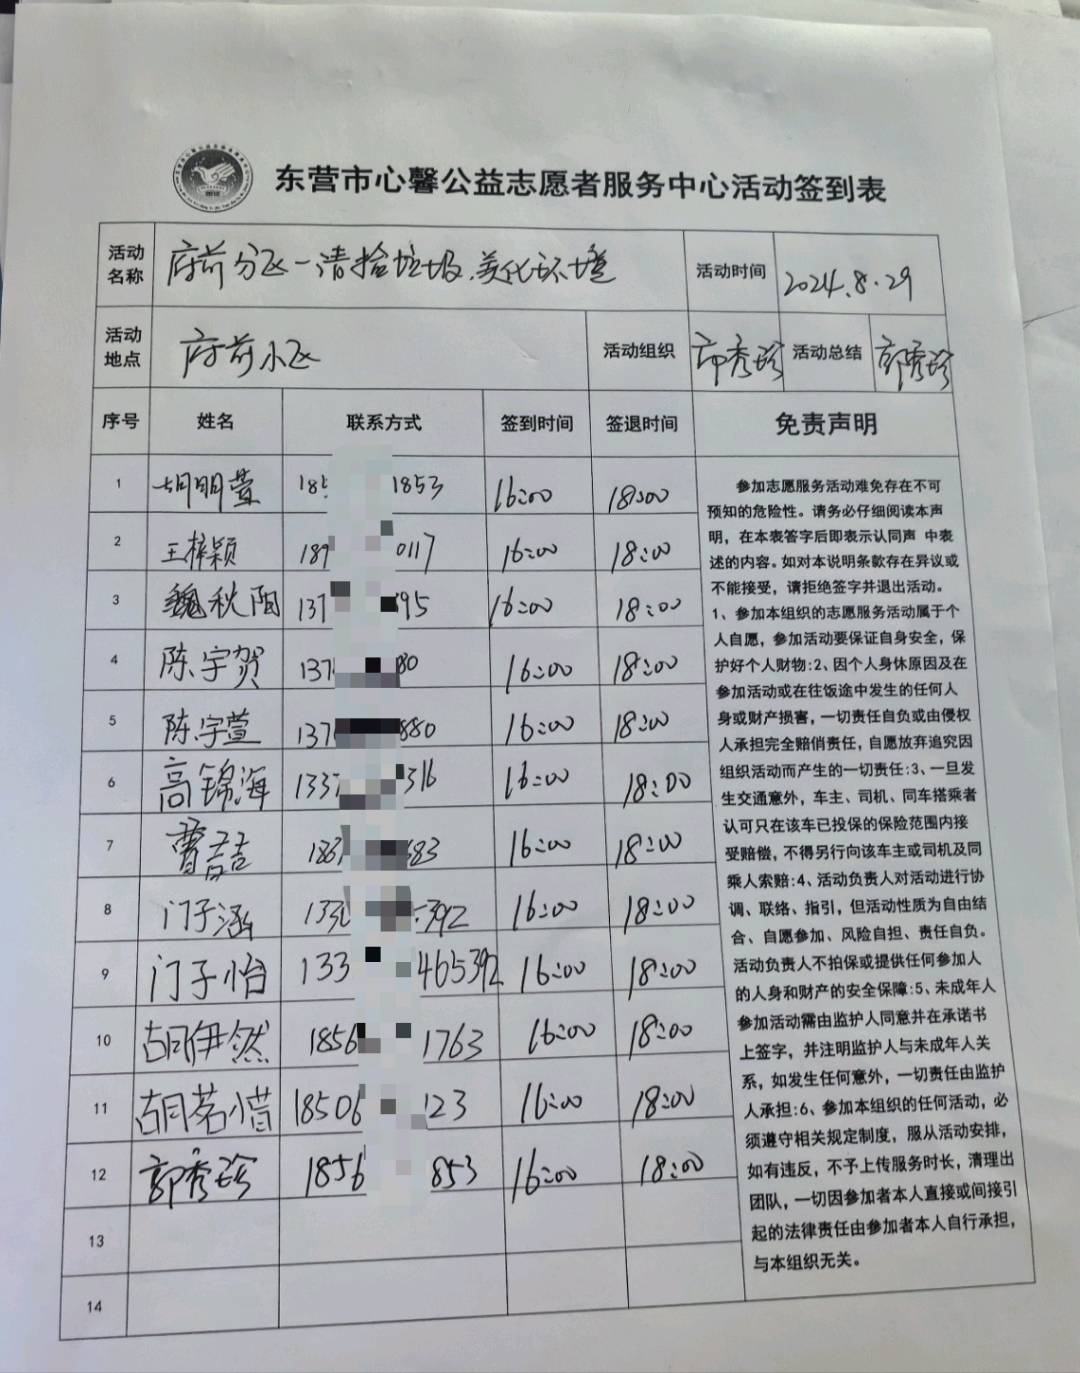 东营市心馨公益志愿者服务中心活动签到表
活动名称 府前分区-清拾垃圾.美化环境 活动时间 2024.8.29
活动地点 府前小区 活动组织 郭秀珍 活动总结 郭秀珍
序号 姓名 联系方式 签到时间 签退时间 免责声明
1 胡明萱 185 1853 16:00 18:00
2 王梓颖 189 0117 16:00 18:00
3 魏秋阳 137 95 16:00 18:00
4 陈宇贺 137 80 16:00 18:00
5 陈宇萱 137 880 16:00 18:00
6 高锦海 1337 316 16:00 18:00
7 曹喆 183 683 16:00 18:00
8 门子涵 133 5392 16:00 18:00
9 门子怡 133 465392 16:00 18:00
10 胡伊然 1856 1763 16:00 18:00
11 胡茗惜 18506 123 16:00 18:00
12 郭秀珍 1856 853 16:00 18:00
13
14
参加志愿服务活动难免存在不可
预知的危险性。请务必仔细阅读本声
明，在本表签字后即表示认同声 中表
述的内容。如对本说明条款存在异议或
不能接受，请拒绝签字并退出活动。
1、参加本组织的志愿服务活动属于个
人自愿，参加活动要保证自身安全，保
护好个人财物:2、因个人身休原因及在
参加活动或在往饭途中发生的任何人
身或财产损害，一切责任自负或由侵权
人承担完全赔偿责任，自愿放弃追究因
组织活动而产生的一切责任:3、一旦发
生交通意外，车主、司机、同车搭乘者
认可只在该车已投保的保险范围内接
受赔偿，不得另行向该车主或司机及同
乘人索赔:4、活动负责人对活动进行协
调、联络、指引，但活动性质为自由结
合、自愿参加、风险自担、责任自负。
活动负责人不拍保或提供任何参加人
的人身和财产的安全保障:5、未成年人
参加活动需由监护人同意并在承诺书
上签字，并注明监护人与未成年人关
系，如发生任何意外，一切责任由监护
人承担:6、参加本组织的任何活动，必
须遵守相关规定制度，服从活动安排，
如有违反，不予上传服务时长，清理出
团队，一切因参加者本人直接或间接引
起的法律责任由参加者本人自行承担，
与本组织无关。